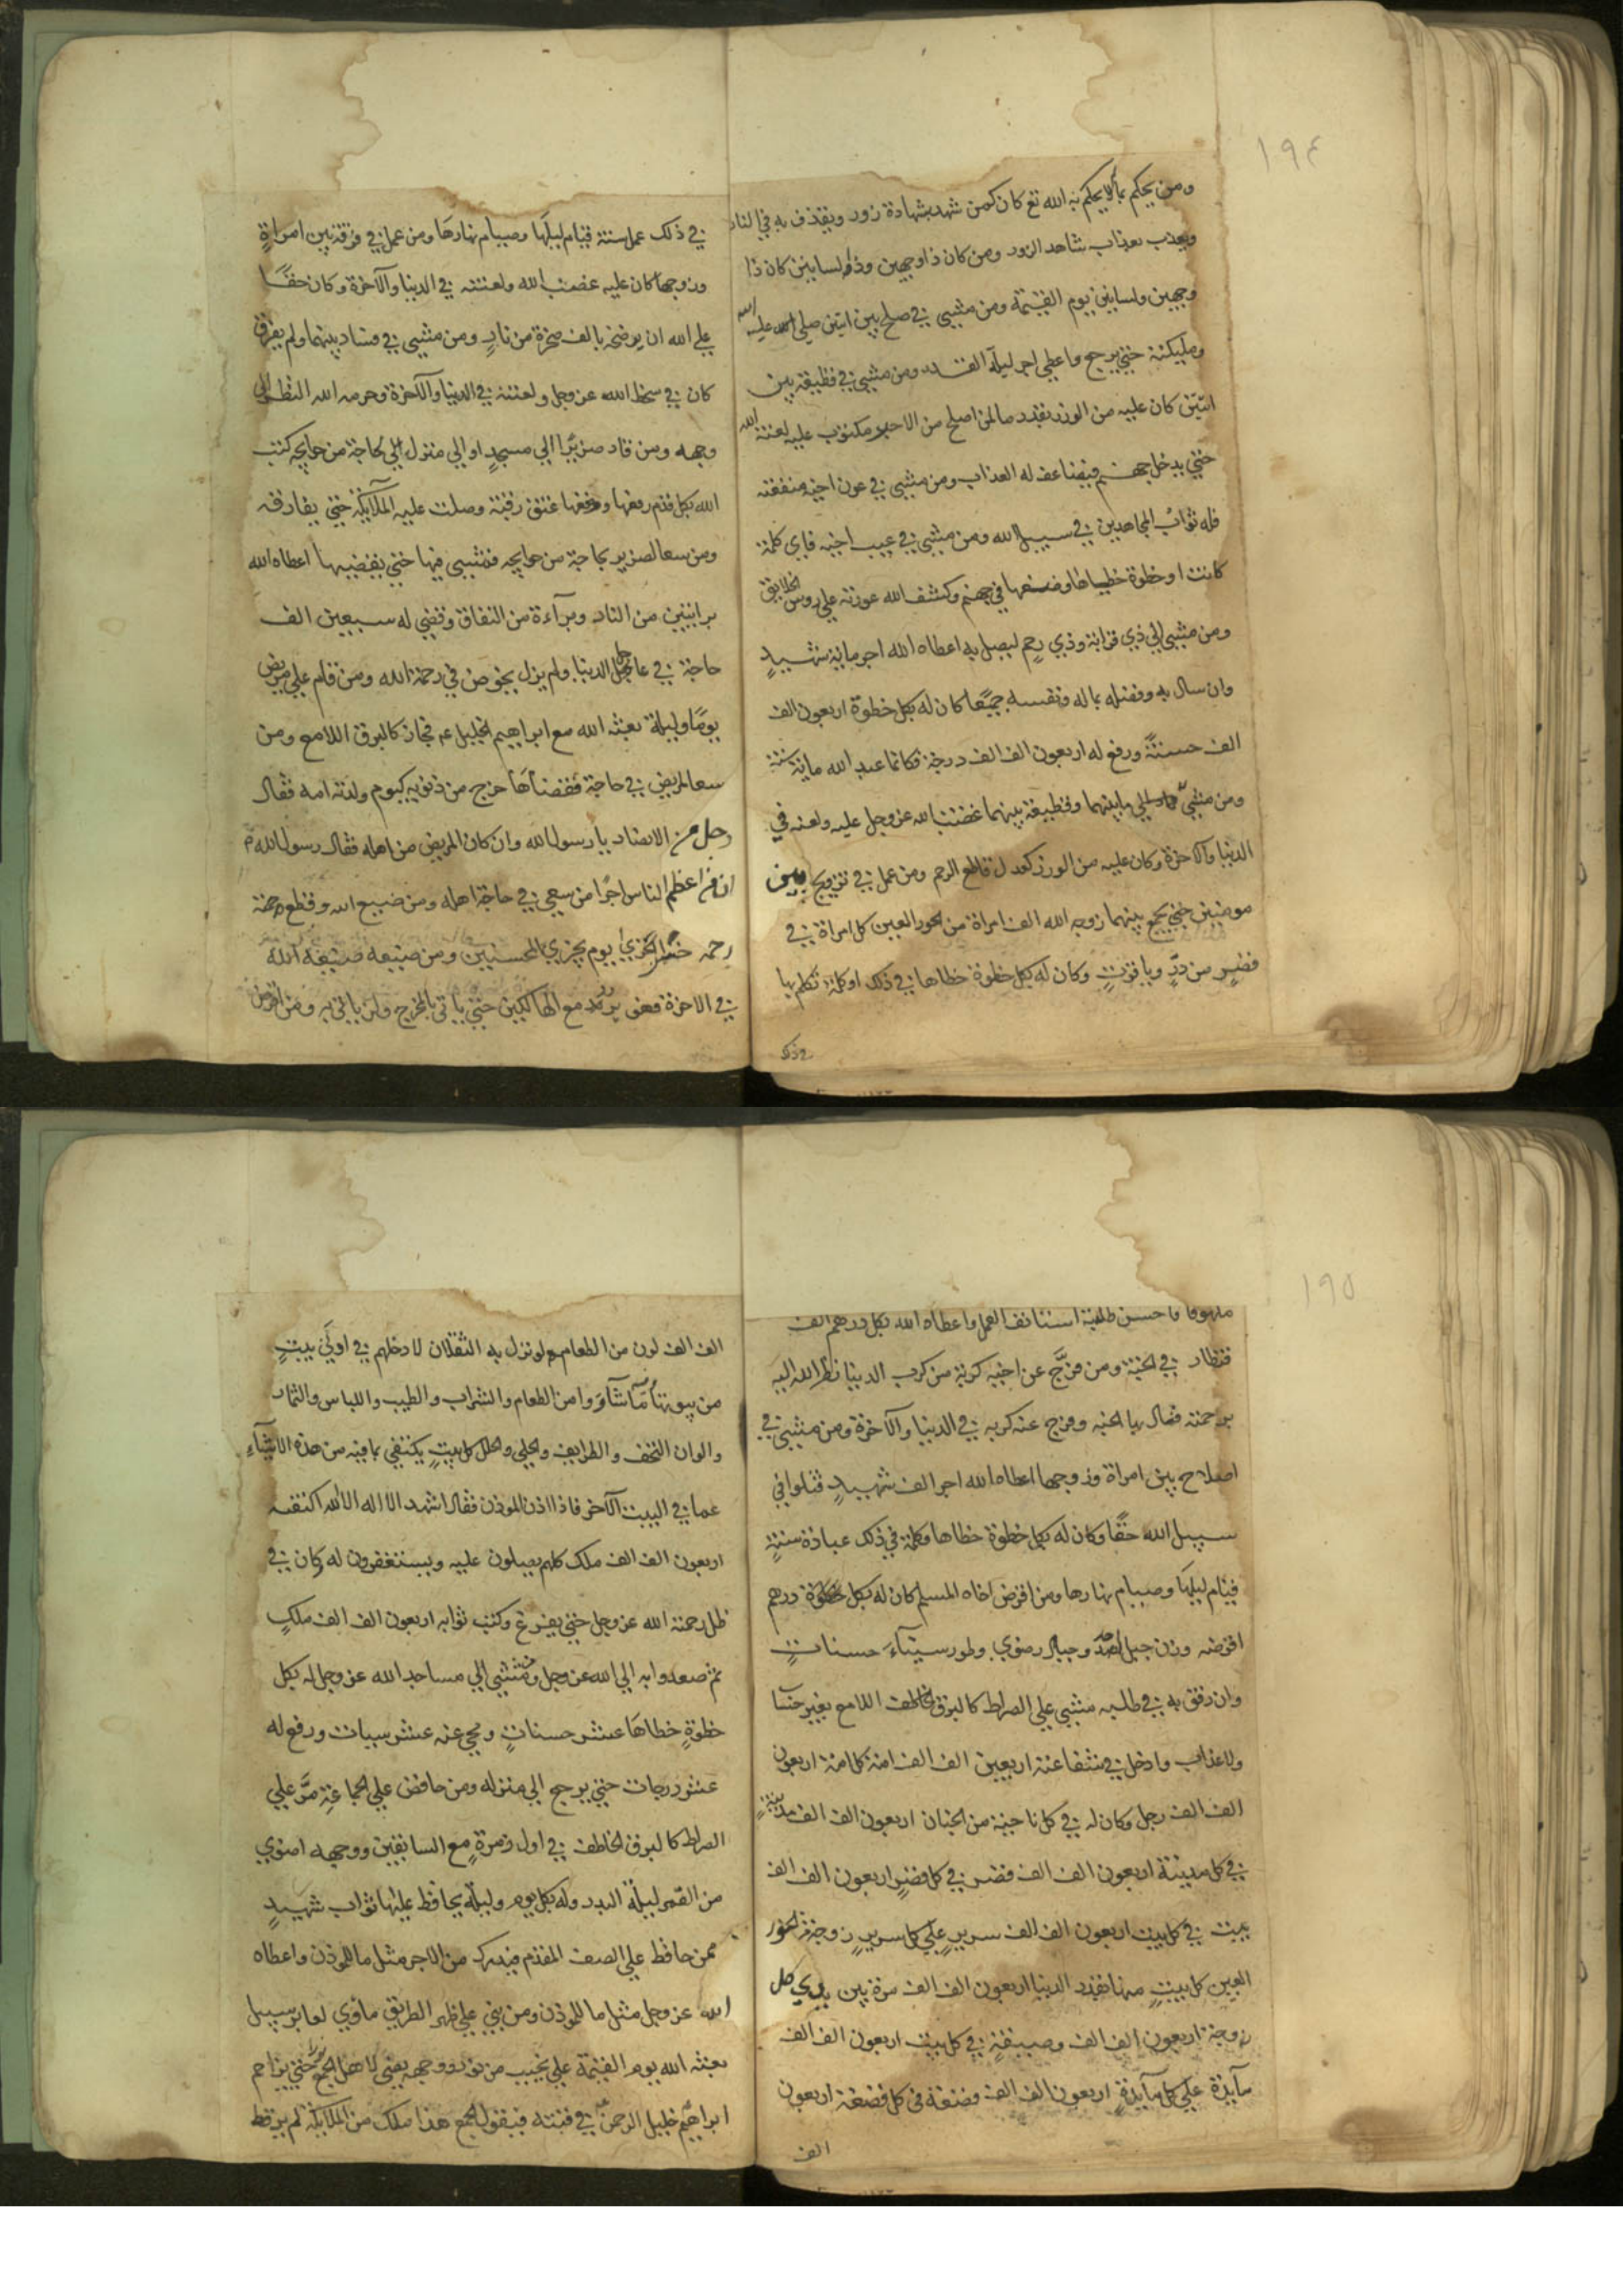 ١٩٤
ومن يحكم بما لا يحكم به الله تع كان كمن شهد بشهادة زور ويقذف به في النار
ويعذب بعذاب شاهد الزور ومن كان ذا وجهين وذا لسانين كان ذا
وجهين ولسانين يوم القيمة ومن مشي في صلح بين اثنين صلي الله عليه
ومليكته حتي يرجع واعطي اجر ليلة القدر ومن مشي في قطيعة بين
اثنين كان عليه من الوزر بقدر ما لمن اصلح من الاجر مكتوب عليه لعنة الله
حتي يدخل جهنم فيضاعف له العذاب ومن مشي في عون اخيه منفعته
فله ثواب المجاهدين في سبيل الله ومن مشي في عيب اخيه فاي كلمة
كانت او خطوة خطاها وضعها في جهنم وكشف الله عورته علي روس الخلايق
ومن مشي الي ذي قرابة وذي رحم ليصل به اعطاه الله اجر ماية شهيد
وان سال به ووصله بماله ونفسه جميعا كان له بكل خطوة اربعون الف
الف حسنة ورفع له اربعون الف الف درجة فكانما عبد الله ماية سنة
ومن مشي بينهما وقطيعة بينهما غضب الله عز وجل عليه ولعنه في
الدنيا والآخرة وكان عليه من الوزر كعدل قاطع الرحم ومن عمل في تزويج بين
مومنين حتي يجمع بينهما زوجه الله الف امراة من الحور العين كل امراة في
قصر من در وياقوت وكان له بكل خطوة خطاها في ذلك او كلمة تكلم بها
في ذلك عمل سنة قيام ليلها وصيام نهارها ومن عمل في فرقة بين امراة
وزوجها كان عليه غضب الله ولعنته في الدنيا والآخرة وكان حقا
علي الله ان يرضخه بالف صخرة من نار ومن مشي في فساد بينهما ولم يفرق
كان في سخط الله عز وجل ولعنته في الدنيا والآخرة وحرمه الله النظر الي
وجهه ومن قاد ضريرا الي مسجد او الي منزل الي حاجة من حوايجه كتب
الله بكل قدم رفعها ووضعها عتق رقبة وصلت عليه الملآيكة حتي يفارقه
ومن سعا لضرير بحاجة من حوايجه فمشي فيها حتي يقضيها اعطاه الله
براتين من النار وبرآءة من النفاق وقضي له سبعين الف
حاجة في عاجل الدنيا ولم يزل يخوض في رحمة الله ومن قام علي مريض
يوما وليلة بعثه الله مع ابراهيم الخليل عم فجاز كالبرق اللامع ومن
سعا لمريض في حاجة فقضاها خرج من ذنوبه كيوم ولدته امه فقال
رجل من الانصار يا رسول الله وان كان المريض من اهله فقال رسول الله م
ان من اعظم الناس اجرا من سعي في حاجة اهله ومن ضيع الله وقطع رحمة
رحمه يوم يجزي المحسنين ومن ضيعه ضيعه الله
في الاخرة فهو يردد مع الهالكين حتي ياتي بالمخرج ولن ياتي به ومن اقرض
١٩٥
ملهوفا فاحسن طلبته استانف العمل واعطاه الله بكل درهم الف
قنطار في الجنة ومن فرج عن اخيه كربة من كرب الدنيا نظر الله اليه
برحمته فقال بها الجنة وفرج عنه كربه في الدنيا والآخرة ومن مشي في
اصلاح بين امراة وزوجها اعطاه الله اجر الف شهيد قتلوا في
سبيل الله حقا وكان له بكل خطوة خطاها وكلمة في ذلك عبادة سنة
قيام ليلها وصيام نهارها ومن اقرض اخاه المسلم كان له بكل درهم
اقرضه وزن جبل احد وجبال رضوي وطور سيناء حسنات
وان رفق به في طلبه مشي علي الصراط كالبرق الخاطف اللامع بغير حساب
ولا عذاب وادخل في شفاعته اربعين الف الف امة كل امة اربعون
الف الف رجل وكان له في كل ناحية من الجنان اربعون الف الف مدينة
في كل مدينة اربعون الف الف قصر في كل قصر اربعون الف الف
بيت في كل بيت اربعون الف الف سرير علي كل سرير زوجة من الحور
العين كل بيت منها بقدر الدنيا اربعون الف الف مرة بين يدي كل
زوجة اربعون الف الف وصيف في كل بيت اربعون الف الف
مآيدة علي كل مآيدة اربعون الف الف قصعة في كل قصعة اربعون
الف
الف الف لون من الطعام لو نزل به الثقلان لادخلهم في ادني بيت
من بيوتها ما شاؤوا من الطعام والشراب والطيب واللباس والثمار
والوان التحف والطرايف والحلي والحلل كل بيت يكتفي بما فيه من هذه الاشيآء
عما في البيت الآخر فاذا اذن الموذن فقال اشهد الا اله الا الله اكتنفه
اربعون الف الف ملك كلهم يصلون عليه ويستغفرون له وكان في
ظل رحمة الله عز وجل حتي يفرغ وكتب ثوابه اربعون الف الف ملك
ثم صعدوا به الي الله عز وجل ومن مشي الي مساجد الله عز وجل له بكل
خطوة خطاها عشر حسنات ومحي عنه عشر سيات ورفع له
عشر درجات حتي يرجع الي منزله ومن حافض علي الجماعة مر علي
الصراط كالبرق الخاطف في اول زمرة مع السابقين ووجهه اضوي
من القمر ليلة البدر وله بكل يوم وليلة يحافظ عليها ثواب شهيد
فمن حافظ علي الصف المقدم فيدرك من الاجر مثل ما للموذن واعطاه
الله عز وجل مثل ما للموذن ومن بني علي ظهر الطريق ماوي لعابر سبيل
بعثه الله يوم القيمة علي نجيب من نور ووجهه يضي لاهل الجمع حتي يزاحم
ابراهيم خليل الرحمن في قبته فيقول الجمع هذا ملك من الملايكة لم ير قط